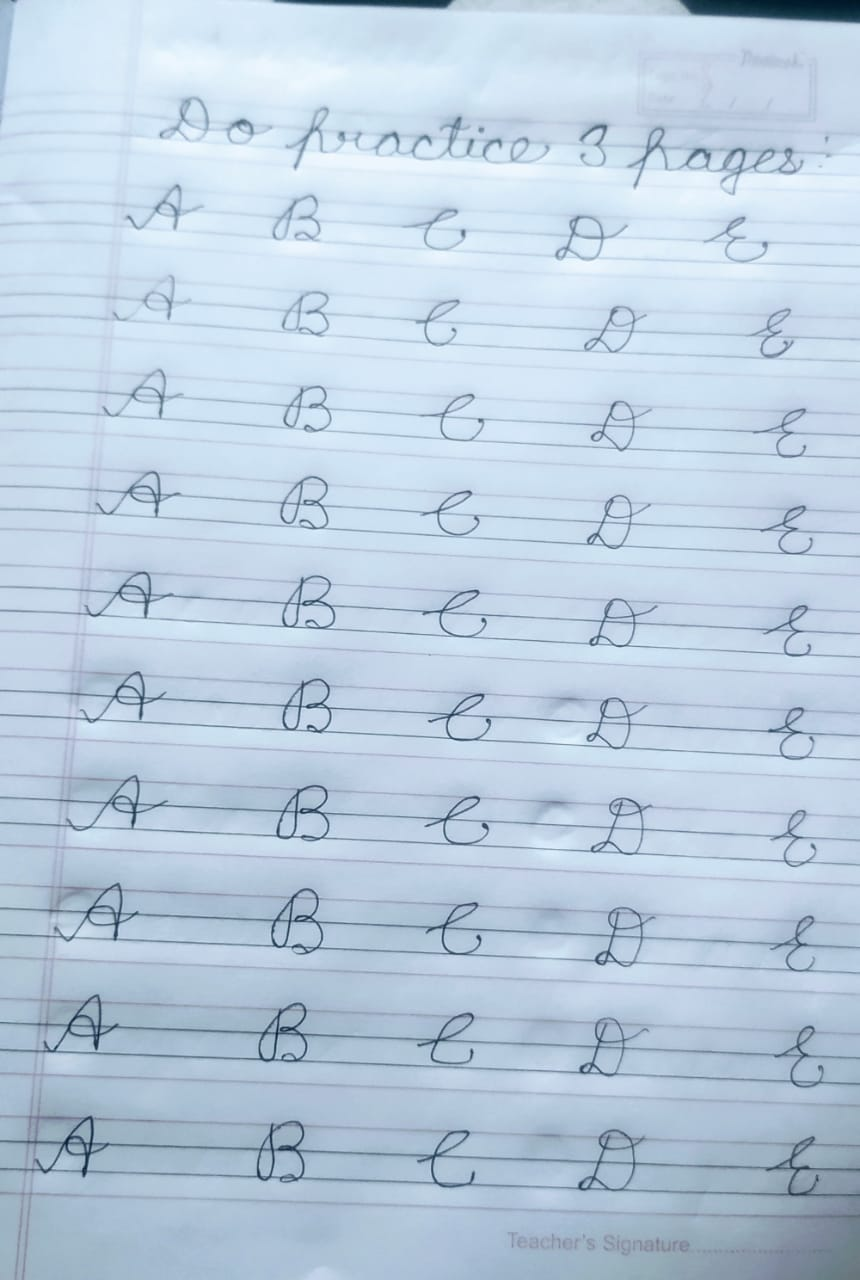 Do practice 3 pages:
A B C D E
A B C D E
A B C D E
A B C D E
A B C D E
A B C D E
A B C D E
A B C D E
A B C D E
A B C D E
Teacher's Signature....................